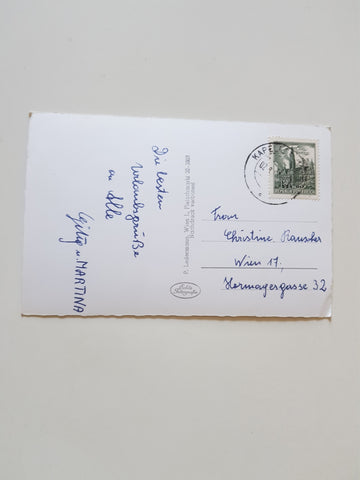 Die besten
Urlaubsgrüße
an Alle
Gitig u. MARTINA
P. Ledermann, Wien I, Fleischmarkt 20
Nachdruck verboten
KAPF
Frau
Christine Rauscher
Wien 17,
Hormayergasse 32